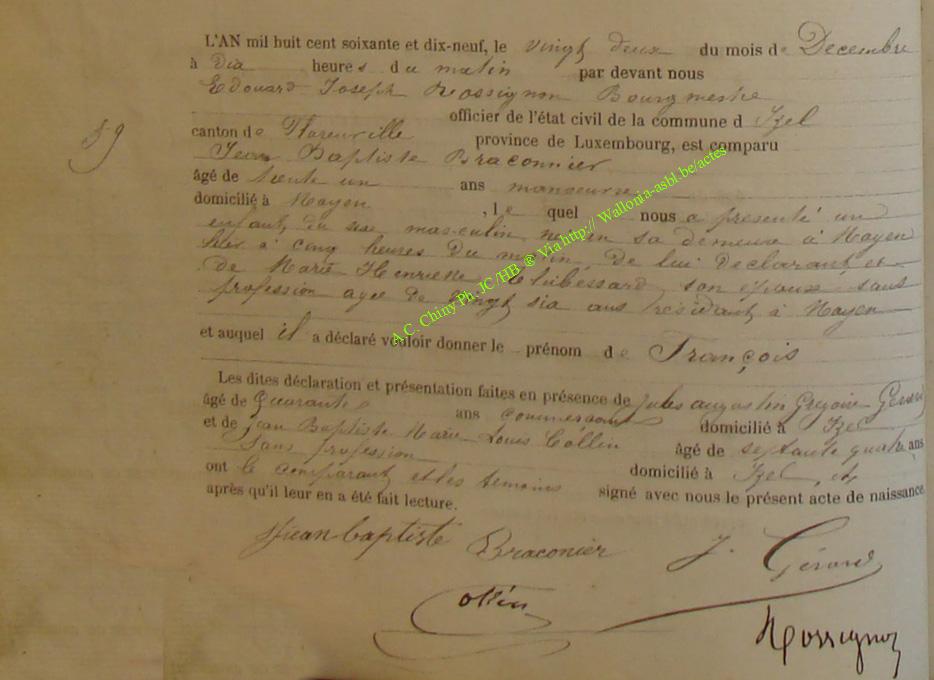 L'AN mil huit cent soixante et dix-neuf, le vingt deux du mois de Decembre
à dix heures du matin par devant nous
Edouard Joseph Rossignon Bourgmestre
officier de l'état civil de la commune d Izel
canton de Florenville province de Luxembourg, est comparu
Jean Baptiste Braconnier
59
âgé de trente un ans manoeuvre
domicilié à Moyen , le quel nous a presenté un
enfant du sexe masculin né en sa demeure à Moyen
hier à cinq heures du matin, de lui declarant et
de Marie Henriette son épouse sans
profession agee de vingt six ans résidant à Moyen
et auquel il a déclaré vouloir donner le prénom de François
Les dites déclaration et présentation faites en présence de Jules augustin Gregoire Gerard
âgé de Quarante ans commercant domicilié à Izel
et de jean Baptiste Marie Louis Collin âgé de septante quatre ans
sans profession domicilié à Izel, et
ont le comparant et les temoins signé avec nous le présent acte de naissance
après qu'il leur en a été fait lecture.
jean baptiste Braconier J. Gérard
Collin
Rossignon
A.C. Chiny Ph. JC/HB ® Via http:// Wallonia-asbl.be/actes